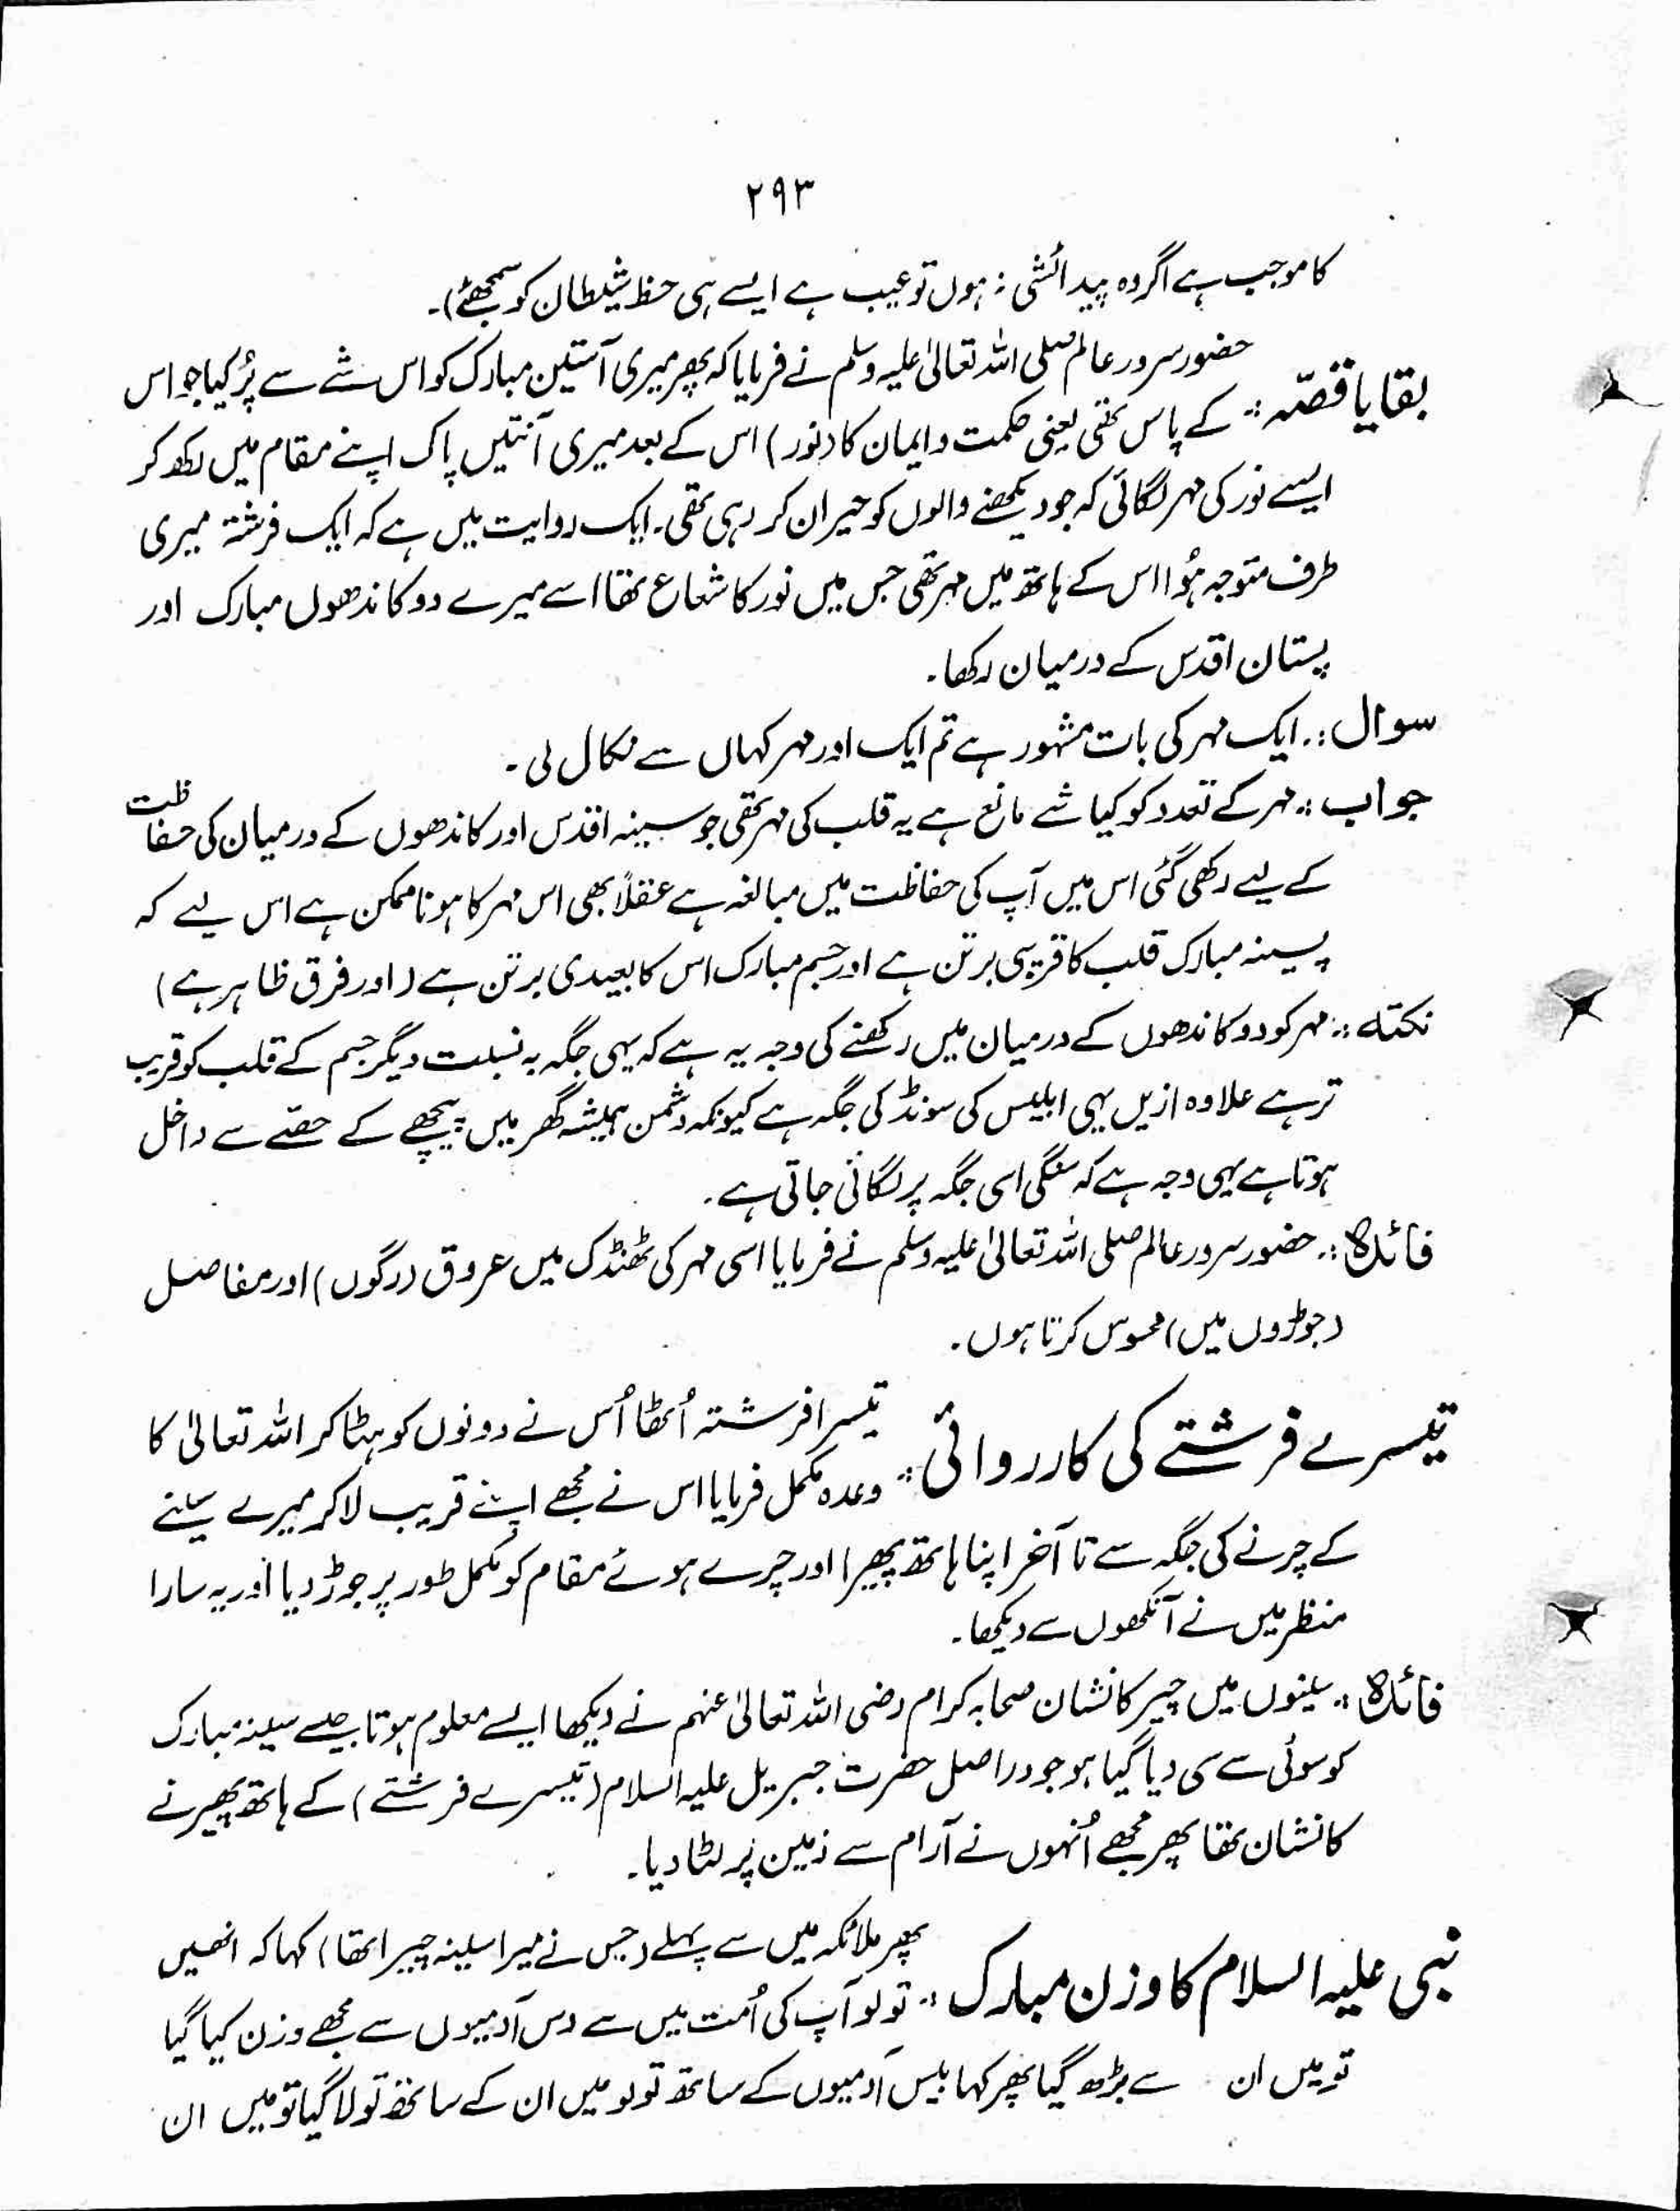 ۲۹۳
کا موجب ہے اگر وہ پیدائشی نہ ہوں تو عیب ہے ایسے ہی حظ شیطان کو سمجھئے)۔
بقایا قصّہ :۔ حضور سرور عالم صلی اللہ تعالیٰ علیہ وسلم نے فرمایا کہ پھر میری آستین مبارک کو اس شے سے پُر کیا جو اس
کے پاس تھی یعنی حکمت و ایمان کا (نور) اس کے بعد میری آنتیں پاک اپنے مقام میں رکھ کر
ایسے نور کی مہر لگائی کہ جو دیکھنے والوں کو حیران کر رہی تھی۔ ایک روایت میں ہے کہ ایک فرشتہ میری
طرف متوجہ ہُوا اس کے ہاتھ میں مہر تھی جس میں نور کا شعاع تھا اسے میرے دو کاندھوں مبارک اور
پستان اقدس کے درمیان رکھا۔
سوال :۔ ایک مہر کی بات مشہور ہے تم ایک اور مہر کہاں سے نکال لی۔
جواب :۔ مہر کے تعدد کو کیا شے مانع ہے یہ قلب کی مہر تھی جو سینہ اقدس اور کاندھوں کے درمیان کی حفاظت
کے لیے رکھی گئی اس میں آپ کی حفاظت میں مبالغہ ہے عقلاً بھی اس مہر کا ہونا ممکن ہے اس لیے کہ
سینہ مبارک قلب کا قریبی برتن ہے اور جسم مبارک اس کا بعیدی برتن ہے (اور فرق ظاہر ہے)
نکتہ :۔ مہر کو دو کاندھوں کے درمیان میں رکھنے کی وجہ یہ ہے کہ یہی جگہ بہ نسبت دیگر جسم کے قلب کو قریب
تر ہے علاوہ ازیں یہی ابلیس کی سونڈ کی جگہ ہے کیونکہ دشمن ہمیشہ گھر میں پیچھے کے حصّے سے داخل
ہوتا ہے یہی وجہ ہے کہ سنگی اسی جگہ پر لگائی جاتی ہے۔
فائدہ :۔ حضور سرور عالم صلی اللہ تعالیٰ علیہ وسلم نے فرمایا اسی مہر کی ٹھنڈک میں عروق (رگوں) اور مفاصل
(جوڑوں میں) محسوس کرتا ہوں۔
تیسرے فرشتے کی کارروائی :۔ تیسرا فرشتہ اُٹھا اُس نے دونوں کو ہٹا کر اللہ تعالیٰ کا
وعدہ مکمل فرمایا اس نے مجھے اپنے قریب لا کر میرے سینے
کے چرنے کی جگہ سے تا آخر اپنا ہاتھ پھیرا اور چرے ہوئے مقام کو مکمل طور پر جوڑ دیا اور یہ سارا
منظر میں نے آنکھوں سے دیکھا۔
فائدہ :۔ سینوں میں چیر کا نشان صحابہ کرام رضی اللہ تعالیٰ عنہم نے دیکھا ایسے معلوم ہوتا جیسے سینہ مبارک
کو سوئی سے سی دیا گیا ہو جو دراصل حضرت جبریل علیہ السلام (تیسرے فرشتے) کے ہاتھ پھیرنے
کا نشان تھا پھر مجھے اُنہوں نے آرام سے زمین پر لٹا دیا۔
نبی علیہ السلام کا وزن مبارک :۔ پھر ملائکہ میں سے پہلے (جس نے میرا سینہ چیرا تھا) کہا کہ انھیں
تولو آپ کی اُمت میں سے دس آدمیوں سے مجھے وزن کیا گیا
تو میں ان سے بڑھ گیا پھر کہا بیس آدمیوں کے ساتھ تولو میں ان کے ساتھ تولا گیا تو میں ان